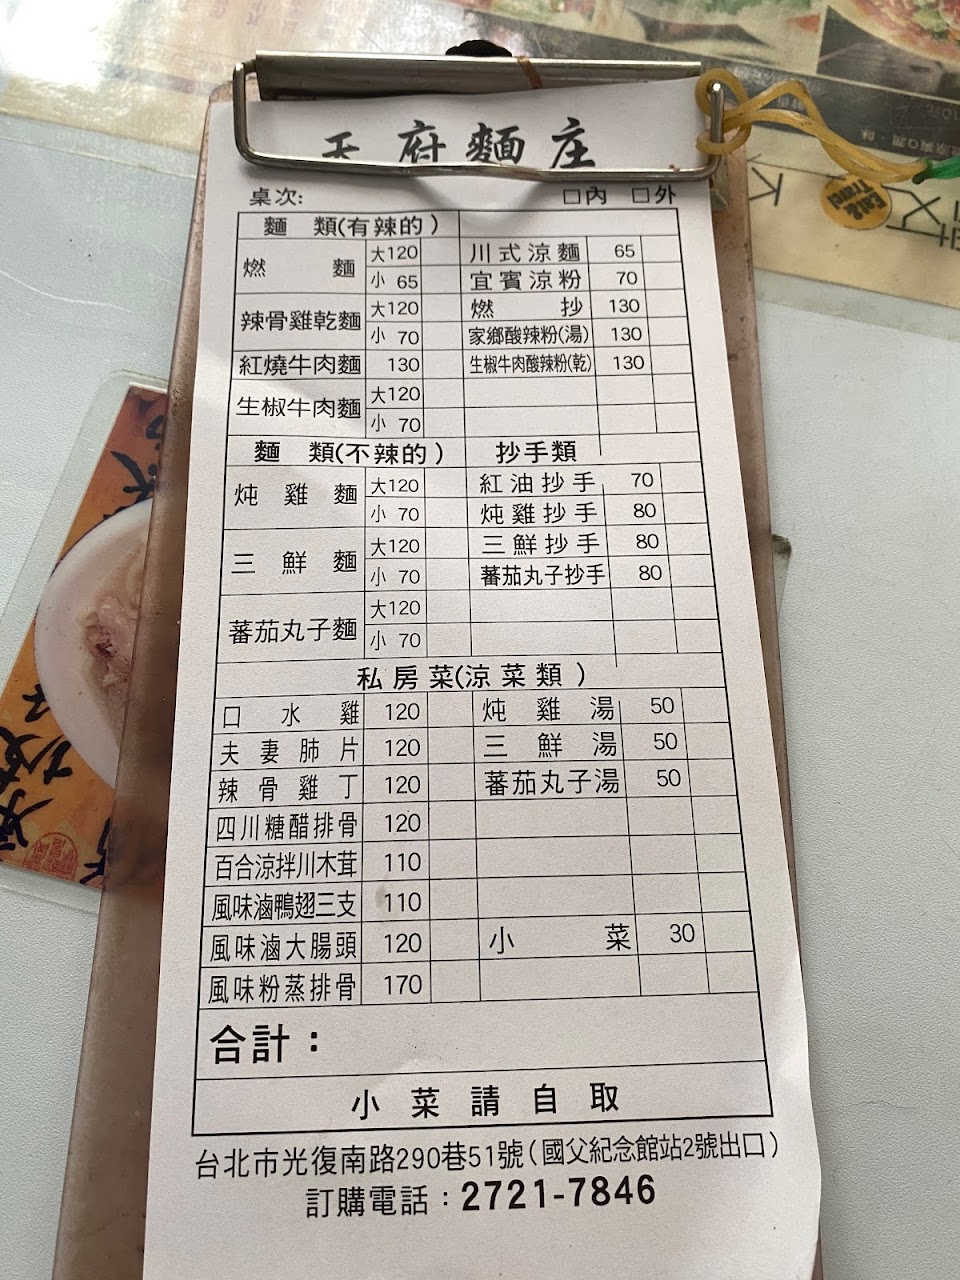 天府麵庄
桌次: □內 □外
麵 類(有辣的)
燃麵 大120 川式涼麵 65
小 65 宜賓涼粉 70
辣骨雞乾麵 大120 燃抄 130
小 70 家鄉酸辣粉(湯) 130
紅燒牛肉麵 130 生椒牛肉酸辣粉(乾) 130
生椒牛肉麵 大120
小 70
麵 類(不辣的) 抄手類
炖雞麵 大120 紅油抄手 70
小 70 炖雞抄手 80
三鮮麵 大120 三鮮抄手 80
小 70 蕃茄丸子抄手 80
蕃茄丸子麵 大120
小 70
私房菜(涼菜類)
口水雞 120 炖雞湯 50
夫妻肺片 120 三鮮湯 50
辣骨雞丁 120 蕃茄丸子湯 50
四川糖醋排骨 120
百合涼拌川木茸 110
風味滷鴨翅三支 110
風味滷大腸頭 120 小菜 30
風味粉蒸排骨 170
合計：
小菜請自取
台北市光復南路290巷51號(國父紀念館站2號出口)
訂購電話：2721-7846
Eat& Travel